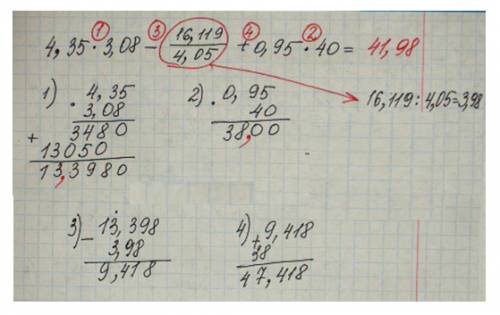 ① ③ ④ ②
4,35·3,08 − 16,119/4,05 + 0,95·40 = 41,98
16,119:4,05=3,98
1) 4,35
· 3,08
3480
+
13050
13,3980
2) · 0,95
40
38,00
3) − 13,398
3,98
9,418
4) + 9,418
38
47,418